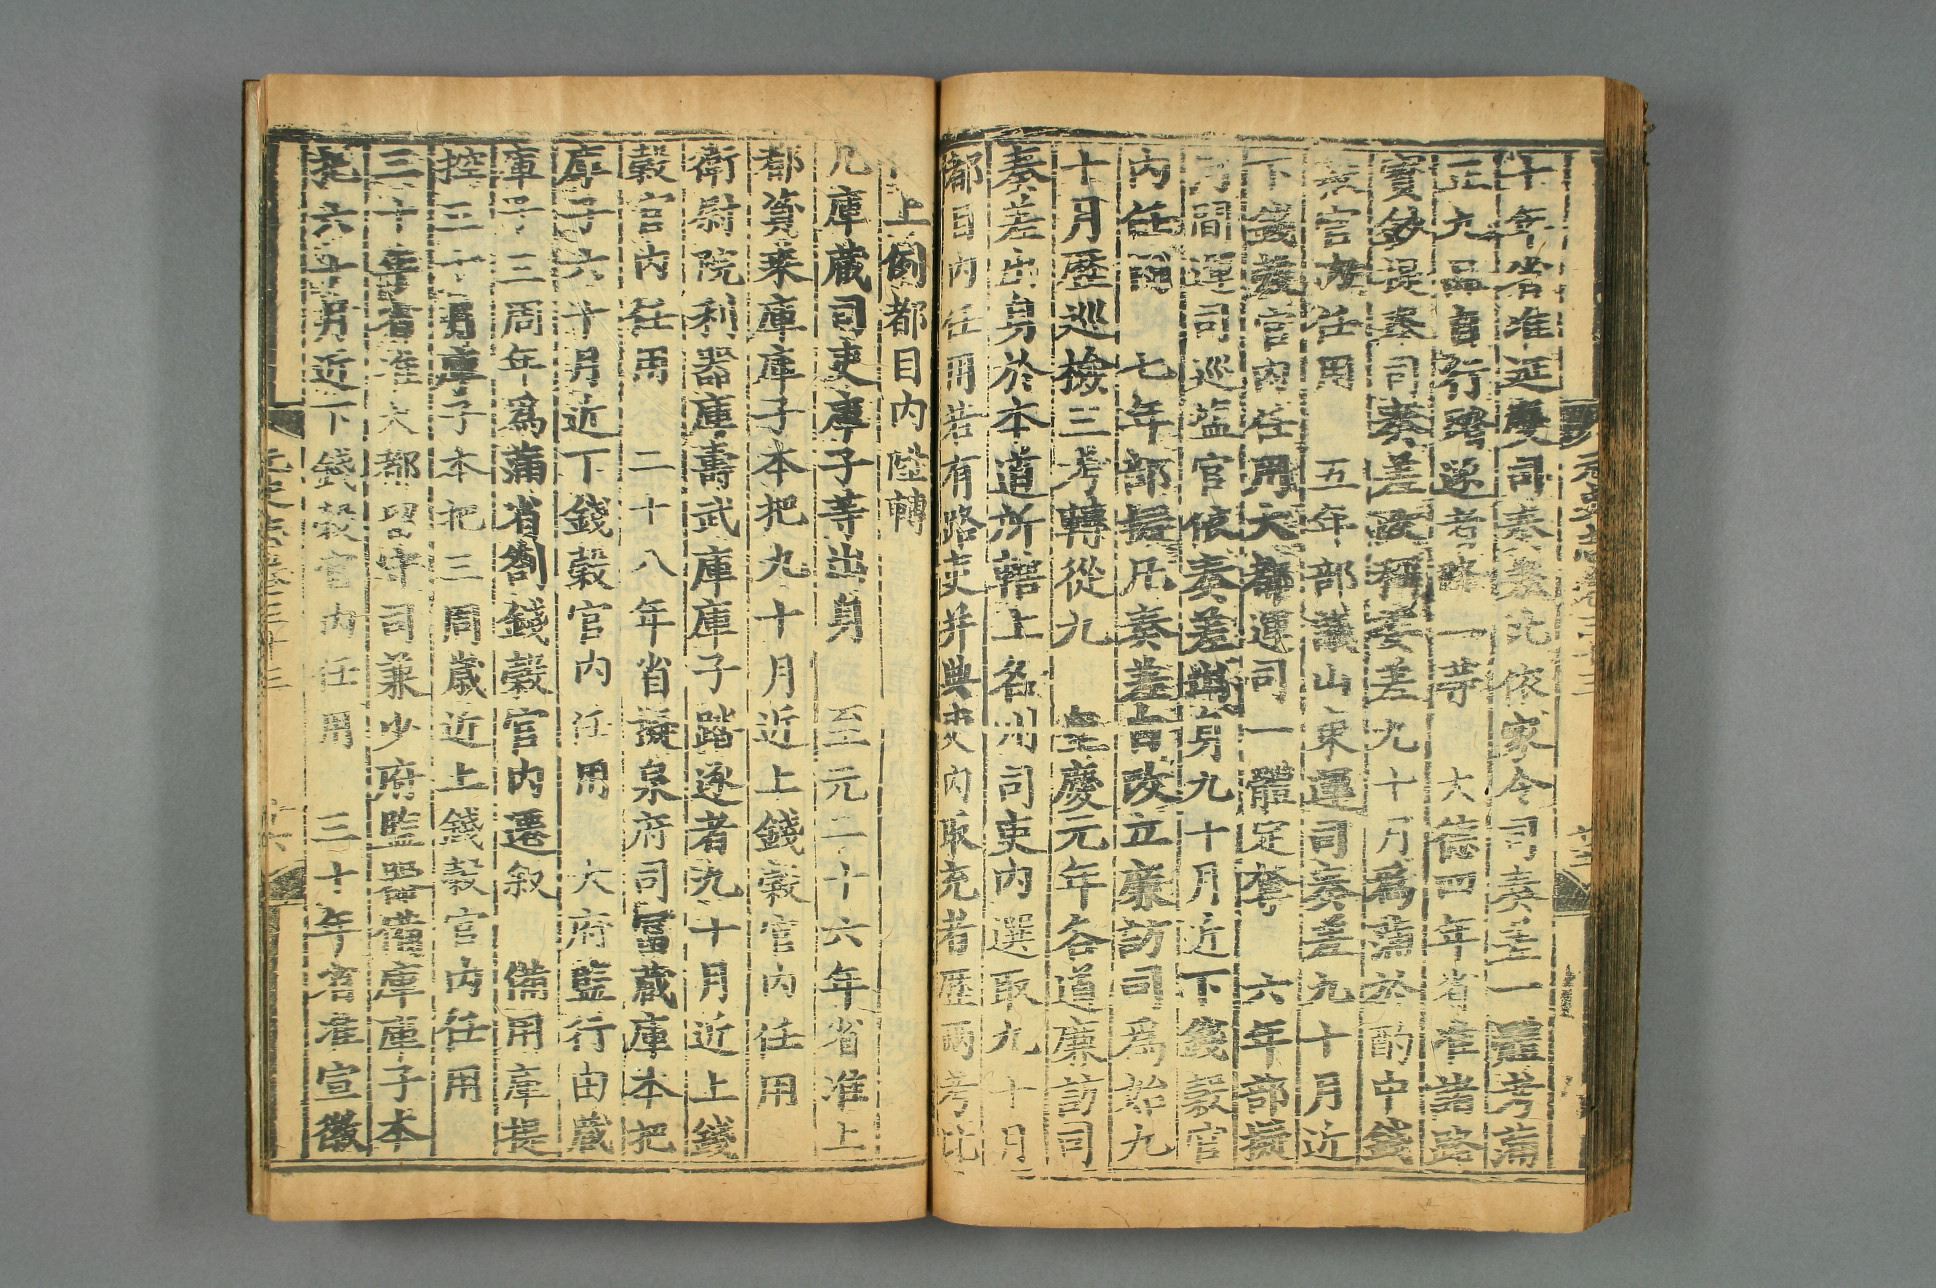 十年省准延慶司奏差比依家令司奏差一體考滿
正九品自行踏逐者降一等　大德四年省准諸路
寶鈔提舉司奏差改稱委差九十月爲滿於酌中錢
穀官內任用　五年部議山東運司奏差九十月近
下錢穀官內任用大都運司一體定奪　六年部擬
河間運司巡鹽官依奏差出身九十月近下錢穀官
內任用　七年部擬凡奏差自改立廉訪司爲始九
十月歷巡檢三考轉從九　皇慶元年各道廉訪司
奏差出身於本道所轄上名州司吏內選取九十月
都目內任用若有路吏并典史內取充者歷兩考比
依上例都目內陞轉
凡庫藏司吏庫子等出身　至元二十六年省准上
都資乘庫庫子本把九十月近上錢穀官內任用
衛尉院利器庫壽武庫庫子踏逐者九十月近上錢
穀官內任用　二十八年省擬泉府司富藏庫本把
庫子六十月近下錢穀官內任用　大府監行由藏
庫子三周年爲滿省劄錢穀官內遷敘　備用庫提
控三十月庫子本把三周歲近上錢穀官內任用
三十年省准大都留守司兼少府監器備庫庫子本
把六十月近下錢穀官內任用　三十年省准宣徽
元史志卷三十三